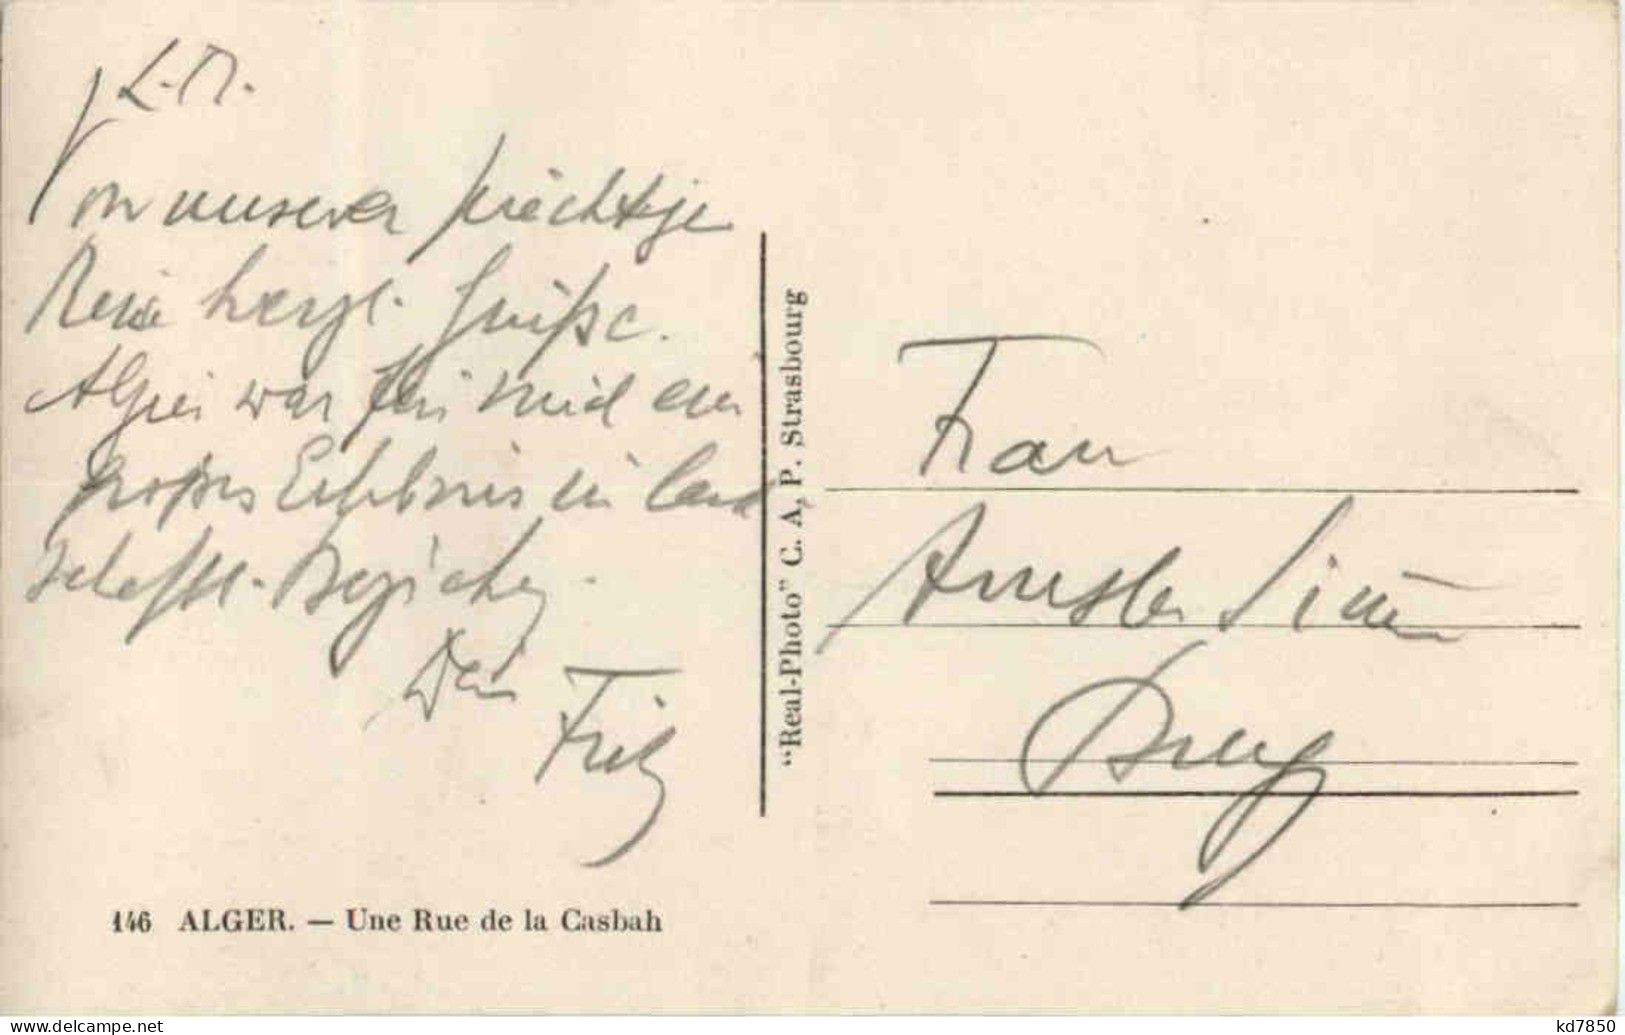 L. M.
Von unserer prächtigen
Reise herzl. Grüße.
Algier war für mich ein
großes Erlebnis in land
schaftl. Beziehg.
Dein
Fritz
146 ALGER. — Une Rue de la Casbah
"Real-Photo" C. A, P. Strasbourg
Frau
Amsler
Brugg
kd7850